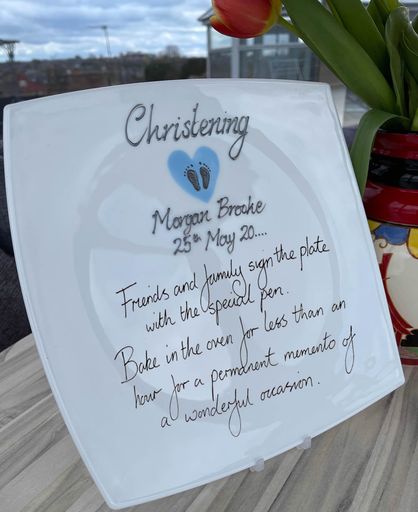 Christening
Morgan Brooke
25th May 20....
Friends and family sign the plate
with the special pen.
Bake in the oven for less than an
hour for a permanent memento of
a wonderful occasion.